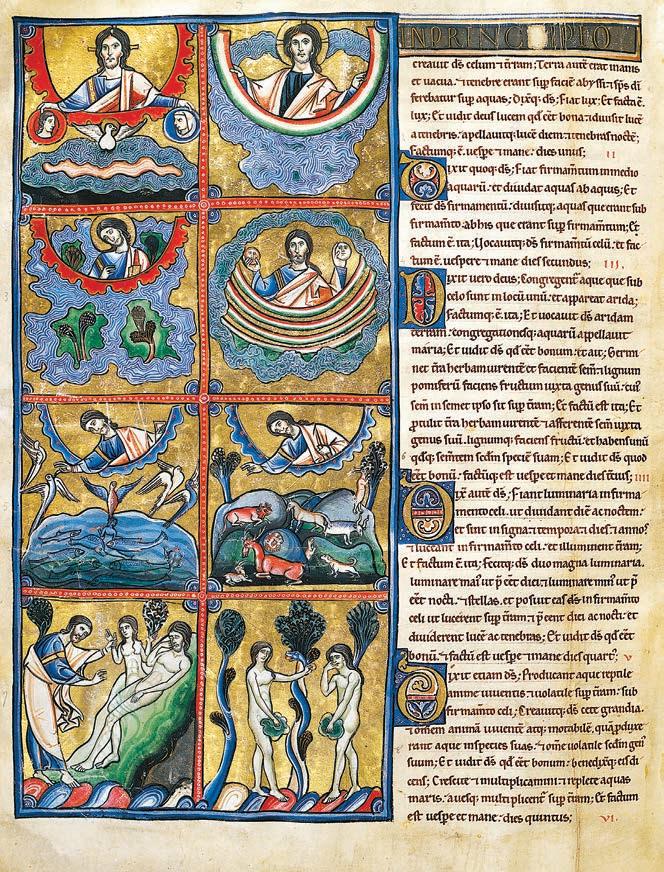 IN PRINCIPIO
creauit d̄s celum ⁊ t̄ram; Terra autē erat inanis
et uacua. ⁊ tenebre erant sup̄ faciē abyssi ⁊ sp̄s dī
ferebatur sup̄ aquas; Dixitq; d̄s; Fiat lux; Et facta ē
lux; Et uidit deus lucem qd̄ eēt bona ⁊ diuisit lucē
a tenebris. appellauitq; lucē diem ⁊ tenebras noctē;
Factumq; ē. uesp̄e ⁊ mane. dies unus; II
Dixit quoq; d̄s; Fiat firmamentum in medio
aquarū. et diuidat aquas ab aquis; Et
fecit d̄s firmamentū. diuisitq; aquas que erant sub
firmam̄to. ab his que erant sup̄ firmam̄tum; Et
factum ē ita; Uocauitq; d̄s firmam̄tū celū. et fac
tum ē. uespere ⁊ mane dies secundus; III.
Dixit uero deus; Congregent̄ aque que sub
celo sunt in locū unū. et appareat arida;
Factumq; ē ita; Et uocauit d̄s aridam
terram. congregationesq; aquarū appellauit
maria; Et uidit d̄s qd̄ eēt bonum. et ait; Germi
net t̄ra herbam uirentē et facientē sem̄. ⁊ lignum
pomiferū faciens fructum iuxta genus suū. cui9
sem̄ in semet ipso sit sup̄ t̄ram; Et factū est ita; Et
p̄tulit t̄ra herbam uirentē ⁊ afferentē sem̄ iuxta
genus suū. lignumq; faciens fructū. et habens unū
qdq; sem̄tem sedm̄ speciē suam; Et uidit d̄s quod
eēt bonū. factūq; est uesp̄e et mane dies t̄cius; IIII
Dix̄ autē d̄s; Fiant luminaria in firma
mento celi. ut diuidant diē ac noctem.
et sint in signa ⁊ tempora ⁊ dies ⁊ anno9
⁊ luceant in firmam̄to celi. et illuminent t̄ram;
Et factum ē ita; Fecitq; d̄s duo magna luminaria.
luminare mai9 ut p̄eēt diei. ⁊ luminare min9 ut p̄
eēt nocti. ⁊ stellas. et posuit eas d̄s in firmam̄to
celi ut lucerent sup̄ t̄ram. ⁊ p̄eent diei ac nocti. et
diuiderent lucē ac tenebras; Et uidit d̄s qd̄ eēt
bonū. ⁊ factū est uesp̄e ⁊ mane dies quart9; V
Dixit etiam d̄s; Producant aque reptile
anime uiuentis ⁊ uolatile sup̄ t̄ram. sub
firmam̄to celi; Creauitq; d̄s cete grandia.
⁊ omem animā uiuentē atq; motabilē. quā p̄duxe
rant aque in species suas. ⁊ ome uolatile sedm̄ gen9
suum; Et uidit d̄s qd̄ eēt bonum. benedixitq; eis di
cens; Crescite ⁊ multiplicamini ⁊ replete aquas
maris. auesq; multiplicent̄ sup̄ t̄ram; Et factum
est uesp̄e et mane. dies quintus; VI.